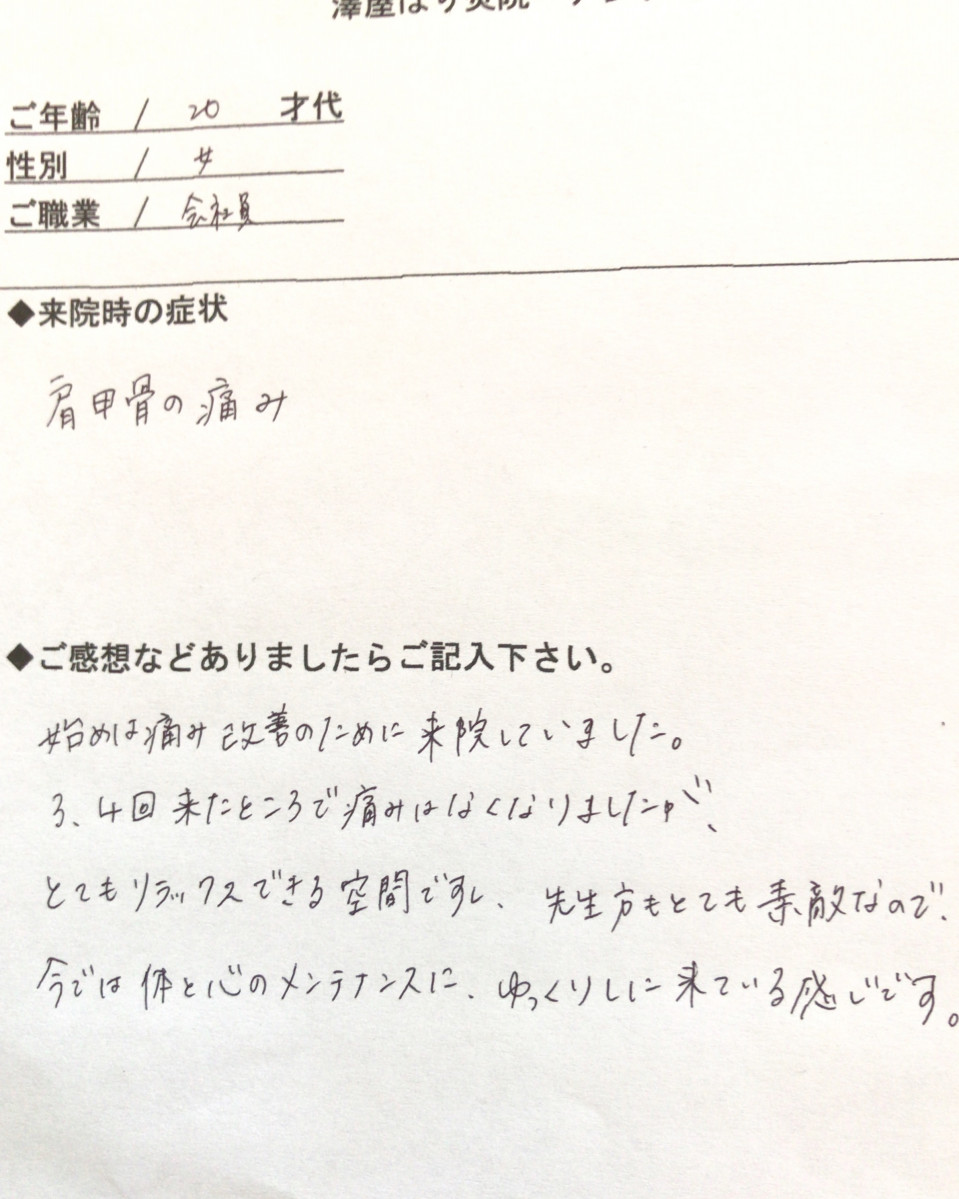 澤屋はり灸院 アン
ご年齢 / 20 才代
性別 / 女
ご職業 / 会社員
◆来院時の症状
肩甲骨の痛み
◆ご感想などありましたらご記入下さい。
始めは痛み改善のために来院していました。
3、4回来たところで痛みはなくなりましたが、
とてもリラックスできる空間ですし、先生方もとても素敵なので、
今では体と心のメンテナンスに、ゆっくりしに来ている感じです。